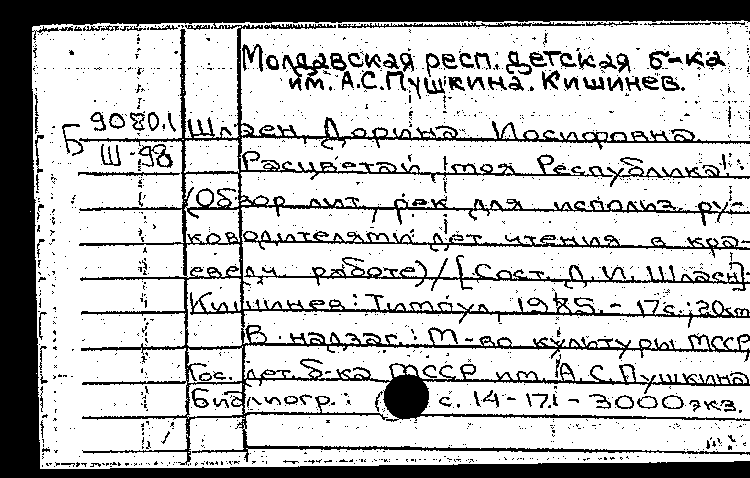 Молдавская респ. детская б-ка
им. А.С.Пушкина. Кишинев.
Б 9080.1 Шлаен, Дорина Иосифовна
III-98 Расцветай, моя Республика!:
(Обзор лит., рек. для использ. ру-
ководителями дет. чтения в кра-
еведч. работе)/[Сост. Д.И. Шлаен].
Кишинев: Тимпул, 1985.- 17с.; 20см
В надзаг.: М-во культуры МССР,
Гос. дет. б-ка МССР им. А.С.Пушкина
Библиогр.: с. 14-17.- 3000экз.